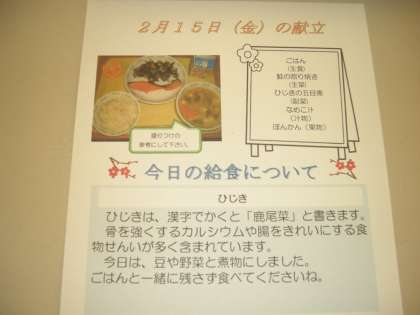 2月15日（金）の献立
ごはん
（主食）
鮭の照り焼き
（主菜）
ひじきの五目煮
（副菜）
なめこ汁
（汁物）
ぽんかん（果物）
盛りつけの
参考にして下さい。
今日の給食について
ひじき
ひじきは、漢字でかくと「鹿尾菜」と書きます。
骨を強くするカルシウムや腸をきれいにする食
物せんいが多く含まれています。
今日は、豆や野菜と煮物にしました。
ごはんと一緒に残さず食べてくださいね。